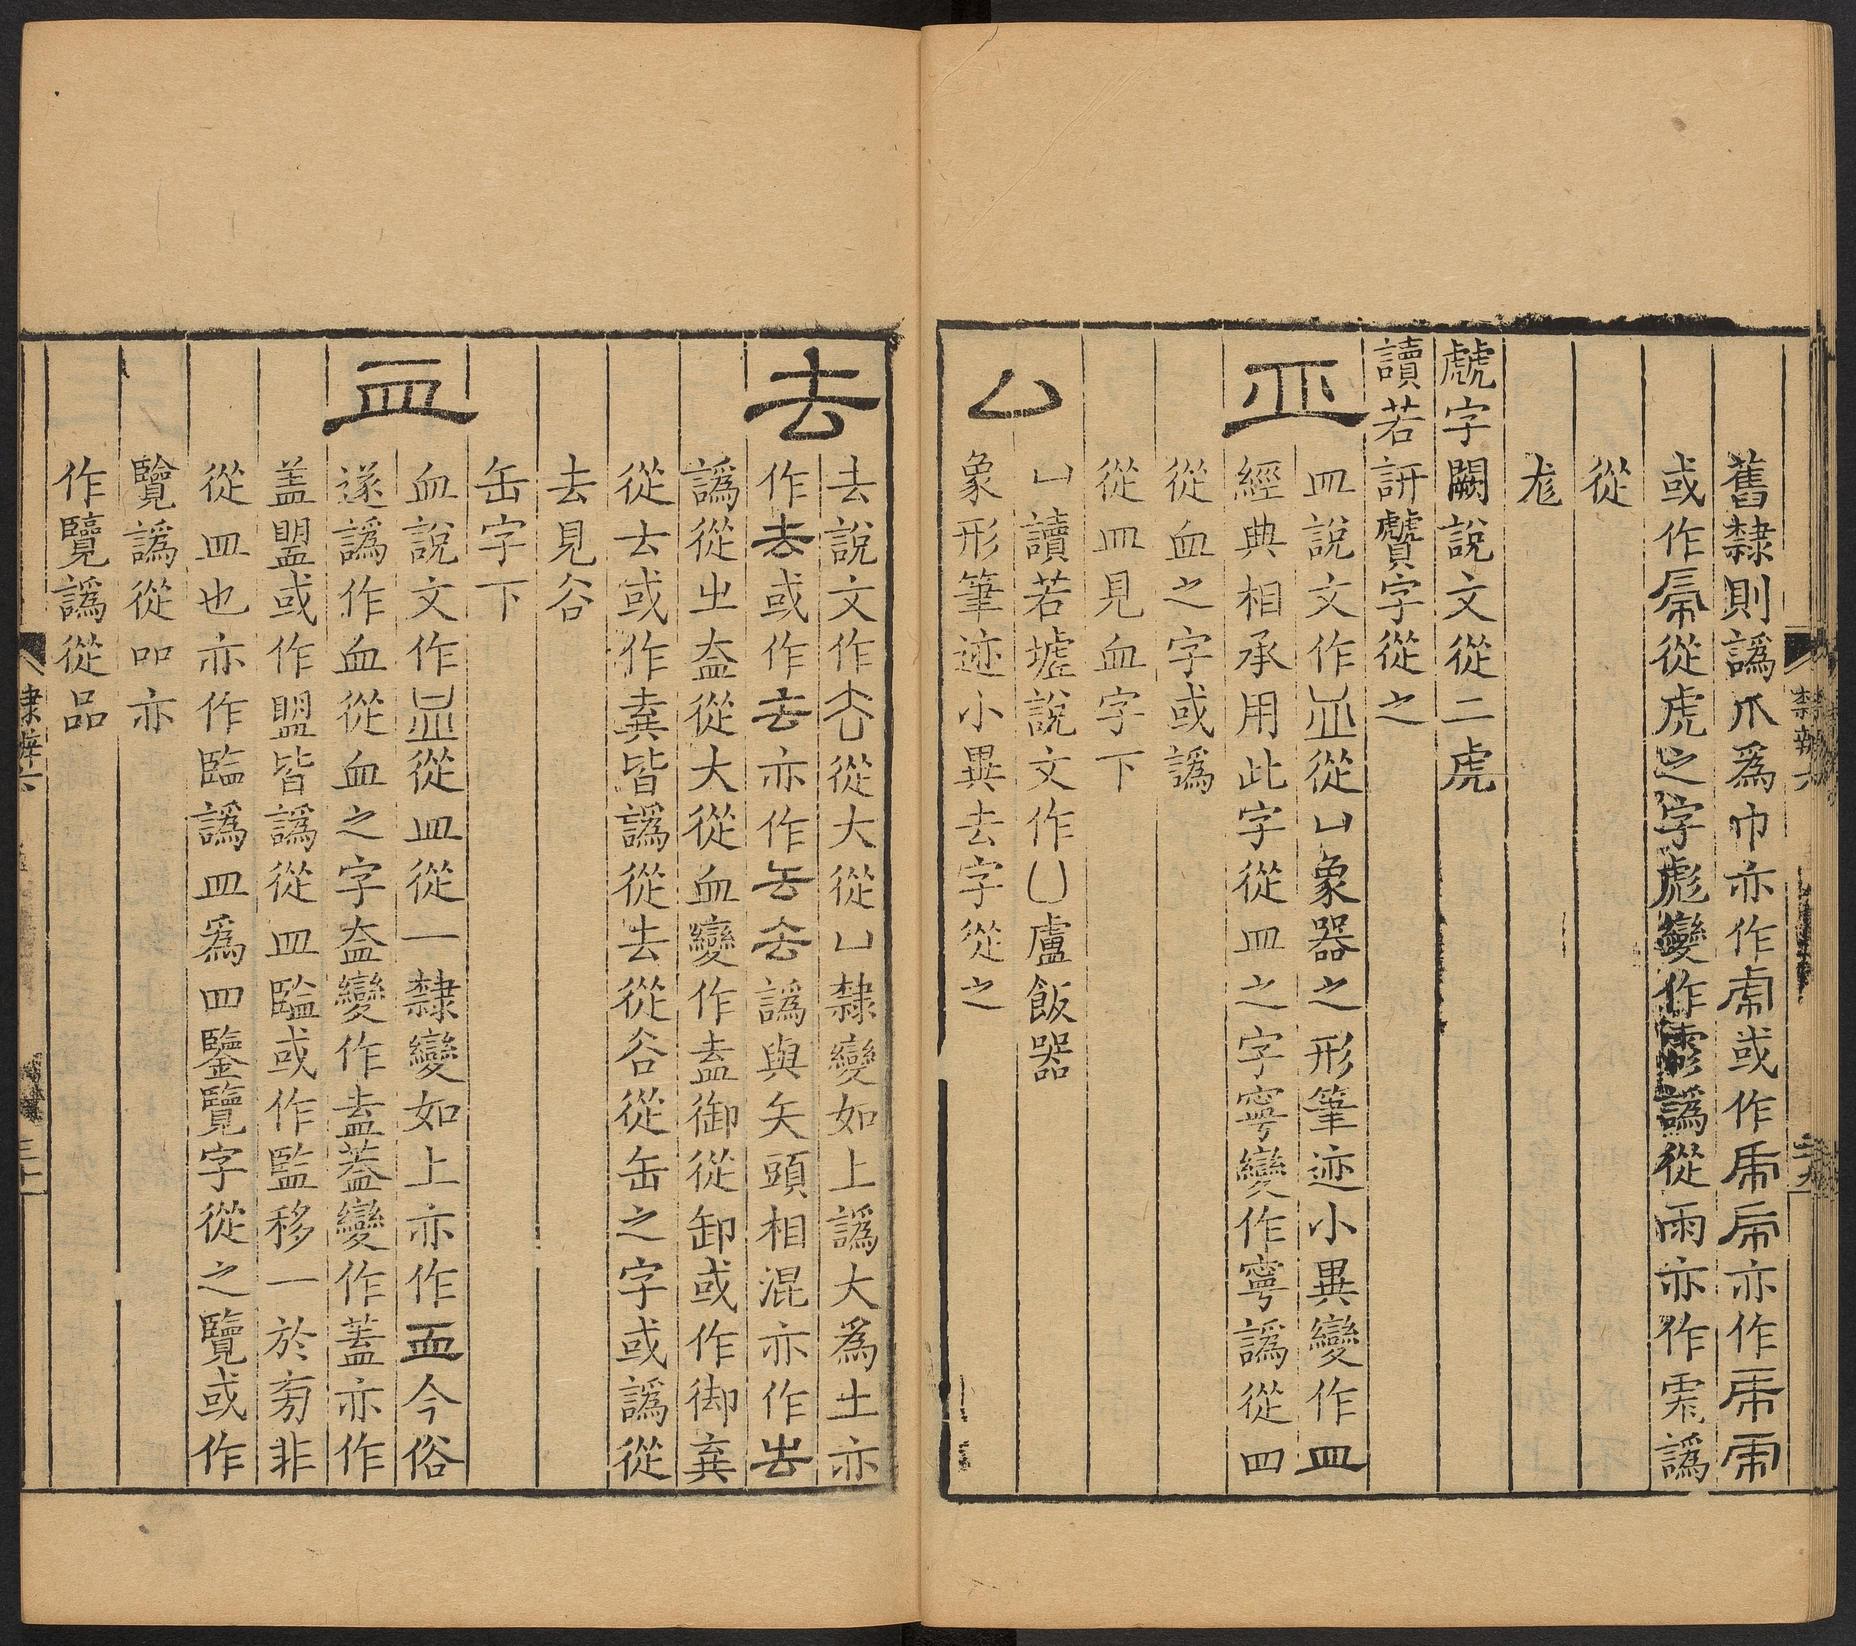 舊隸則譌爪爲巾亦作或作亦作
或作從虎之字彪變作譌從雨亦作譌
從
尨
虤字闕說文從二虎
讀若訮贙字從之
皿
皿說文作從凵象器之形筆迹小異變作皿
經典相承用此字從皿之字寧變作寧譌從四
從血之字或譌
從皿見血字下
凵
凵讀若墟說文作凵盧飯器
象形筆迹小異去字從之
去
去說文作從大從凵隸變如上譌大爲土亦
作去或作亦作譌與矢頭相混亦作
譌從㞢盇從大從血變作盍御從卸或作御弃
從𠫓或作棄皆譌從去從谷從缶之字或譌從
去見谷
缶字下
血
血說文作從皿從一隸變如上亦作今俗
遂譌作血從血之字盇變作盍蓋變作蓋亦作
盖盟或作盟皆譌從皿監或作監移一於旁非
從皿也亦作臨譌皿爲四鑒覽字從之覽或作
覽譌從吅亦
作覽譌從品
隸辨六